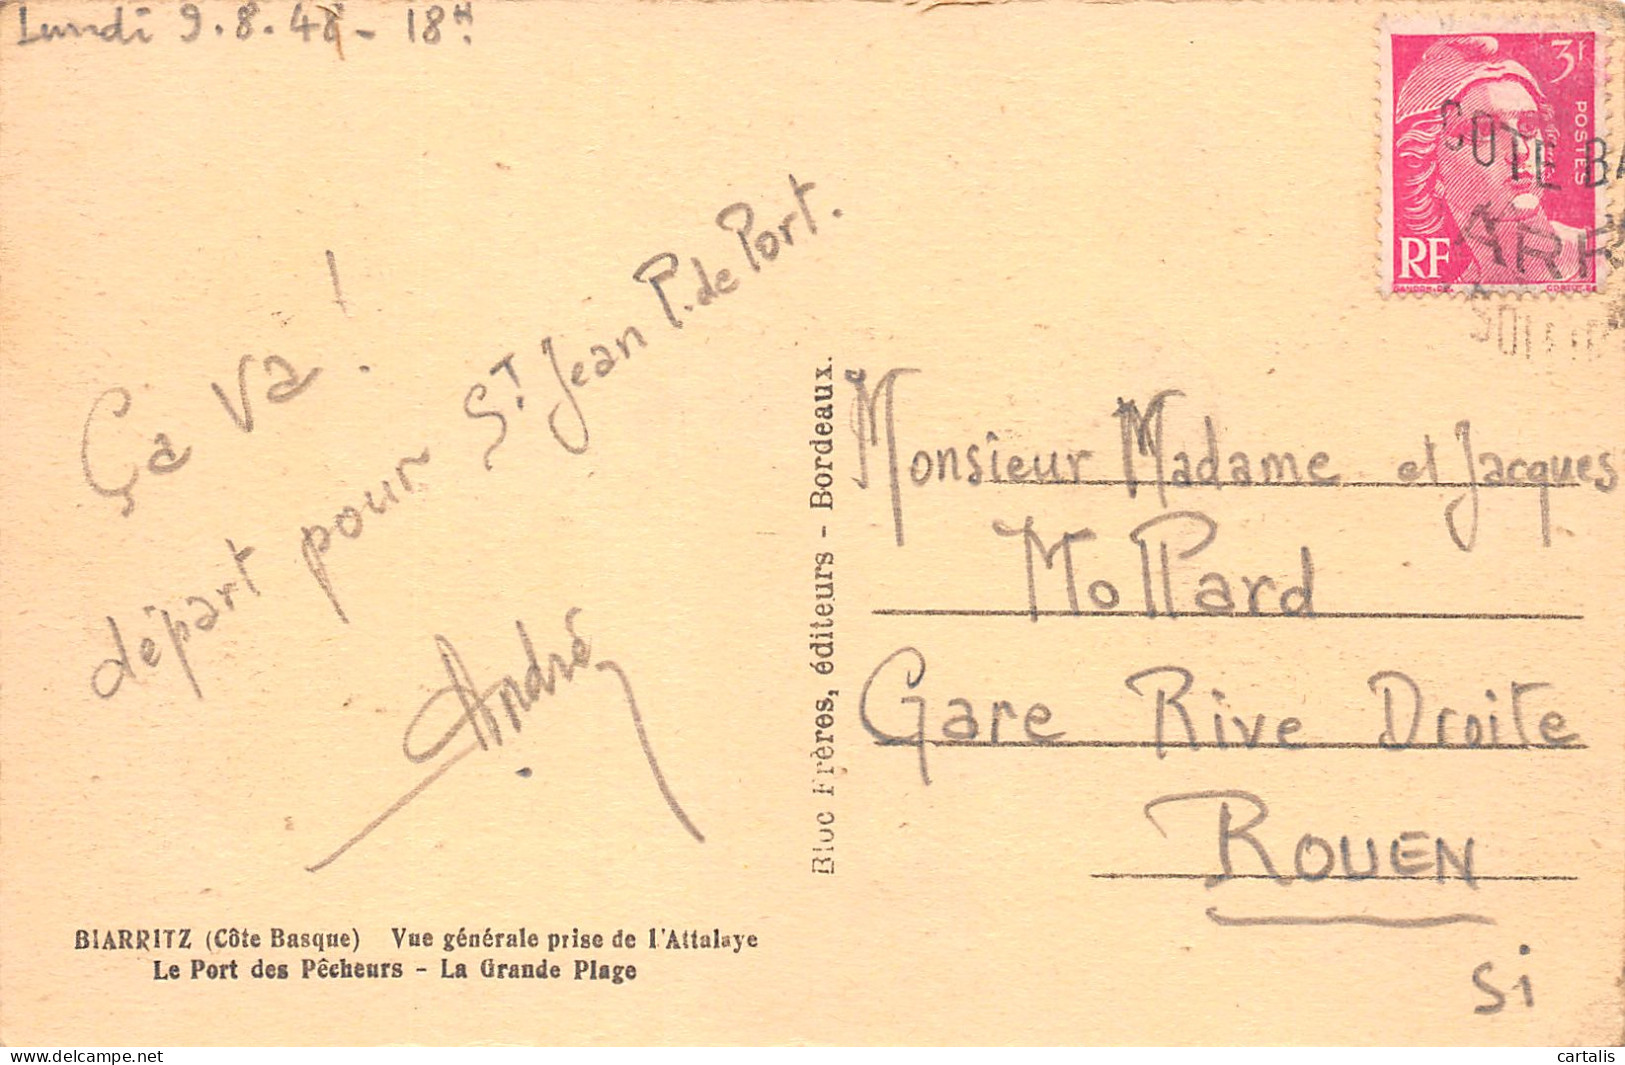 Lundi 9.8.48 - 18H.
3F
POSTES
RF
COTE BA
Ça va !
départ pour ST Jean P. de Port.
André
Bloc Frères, éditeurs - Bordeaux.
Monsieur Madame et Jacques
Mollard
Gare Rive Droite
ROUEN
Si
BIARRITZ (Côte Basque) Vue générale prise de l'Attalaye
Le Port des Pêcheurs - La Grande Plage
cartalis